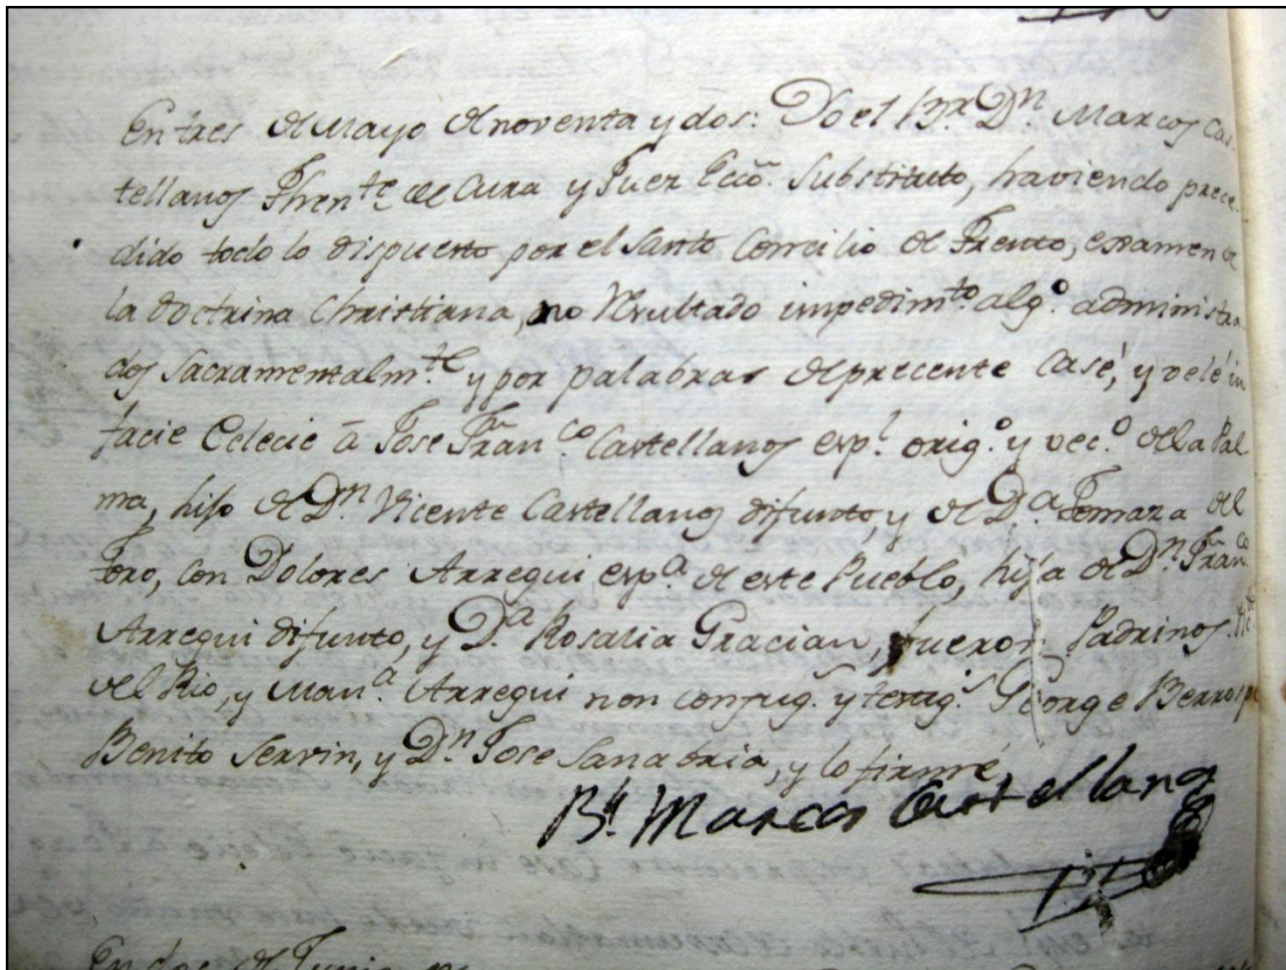 En tres de Mayo de noventa y dos: Yo el Br. Dn. Marcos Cas-
tellanos Thente. de Cura y Juez Ecco. Substituto, haviendo prece-
dido todo lo dispuesto por el Santo Concilio de Trento, examen de
la Doctrina Christiana, no Resultado impedimto. algo. administra-
dos Sacramentalmte. y por palabras de precente Casé, y velé in
facie Eclecie â Jose Franco. Castellanos espl. origo. y veco. de la Pal-
ma, hijo de Dn. Vicente Castellanos difunto, y de Da. Tomaza del
Toro, con Dolores Arregui espa. de este Pueblo, hija de Dn. Franco.
Arregui difunto, y Da. Rosalia Gracian, fueron Padrinos
del Rio, y Mana. Arregui non conjug. y testigs. George Berrospe
Benito Servin, y Dn. Jose Sanabria, y lo firmé,
Br. Marcos Castellanos
En dos de Junio